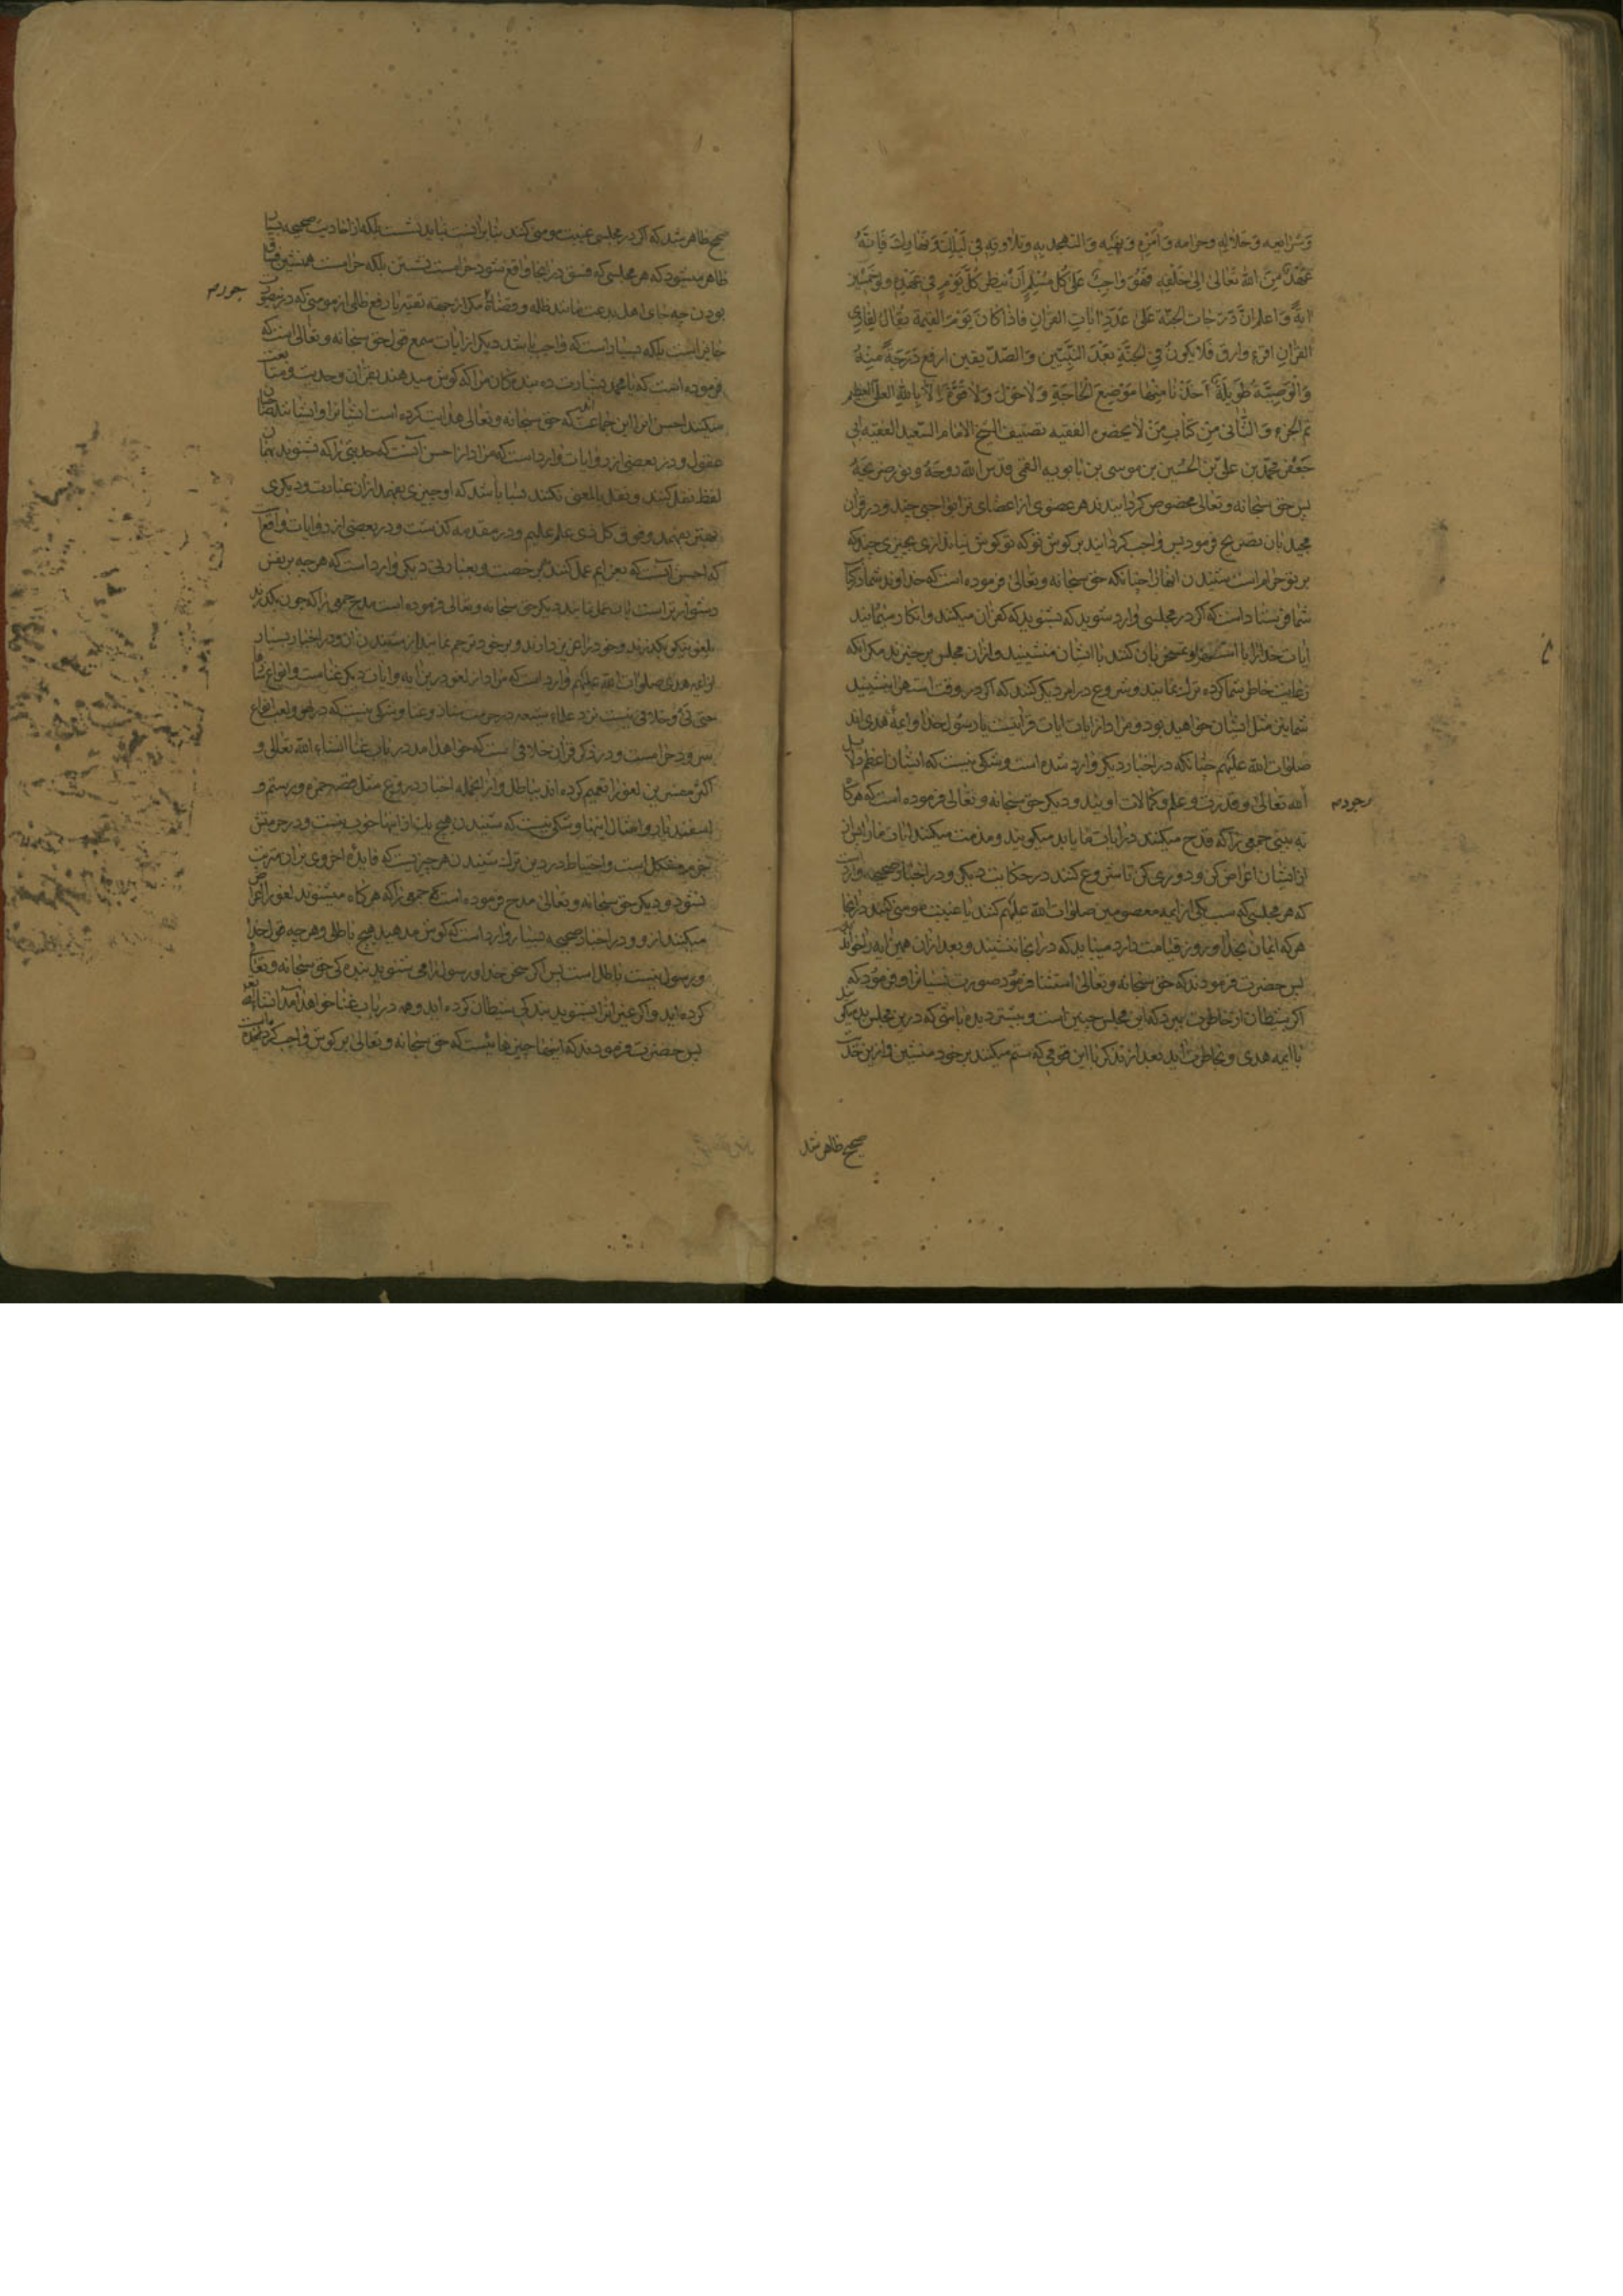 وَشَرايعِه وَحَلالِهِ وحرامه وَاَمرِهِ وَنهيه وَالتهجد بِهِ وتلاوتِهِ فِي لَيْلِكَ وَنَهارِكَ فَاِنّهُ
عَهْدٌ مِنَ اللهِ تعَالى اِلى خَلقِهِ فَهُوَ وَاجِبٌ عَلى كُلّ مُسْلِمٍ اَنْ يَنظُرَ كُلّ يَوْمٍ فِي عَهْدِهِ ولو خَمْسِينَ
ايةً وَاعلم انَّ دَرَجات الجنّة عَلى عَدَدِ اٰياتِ القرآنِ فاذا كانَ يَوْمَ القيٰمة يقال لِقارِي
القرْآنِ اقرَء وارقَ فَلا يكونُ فِي الجنّةِ بَعْدَ النَّبِيّين وَالصّدّيقين ارفع دَرَجَةً مِنهُ
وَالْوَصِيّةُ طَوِيلَةٌ اَخذْنا مِنْها مَوْضِعَ الْحَاجَةِ وَلا حَوْلَ وَلا قُوَّةَ اِلّا بِاللهِ العليّ العظيم
تم الجزء وَالثّانى مِنْ كِتابِ مَنْ لا يحضره الفقيه تصنيف الشيخ الامام السّعيد الفقيه ابي
جَعْفَر محمّد بن عليّ بْنِ الْحُسَين بن موسى بن بابويه القمى قدّس اللّه روحَهُ ونوّر ضريحَهُ
پس حق سبحانه وتعالى مخصوص كردانيد هر عضوى از اعضاى ترا بواجبى چند ودر قرآن
مجيد بان تصريح فرمود پس واجب كردانيد بر كوش تو كه تو كوش نيندازى بچيزى چند كه
بر تو حرام است شنيدن انها چنانكه حق سبحانه وتعالى فرموده است كه خداوند شما در كتاب
شما فرستاد است كه اكر در مجلسى وارد شويد كه بشنويد كه كفران ميكنند وانكار مينمايند
ايات خدا را يا استهزا وتمسخر بان كنند با ايشان منشينيد وازان مجلس برخيزند مكر انكه
رعايت خاطر شما كرده ترك نمايند وشروع در امر ديكر كنند كه اكر در وقت استهزا بنشينيد
شما نيز مثل ايشان خواهيد بود ومراد از ايات ايات قرآنست يا رسول خدا وائمهٔ هدى اند
صلوات اللّه عليهم چنانكه در اخبار ديكر وارد شده است وشكى نيست كه ايشان اعظم دلايل
اللّه تعالى وقدرت وعلم وكمالات اويند وديكر حق سبحانه وتعالى فرموده است كه هركا
ه بينى جمعى را كه قدح ميكنند در ايات ما يا بد ميكويند ومذمت ميكنند ايات ما را پس از
از ايشان اعراض كن ودورى كن تا شروع كنند در حكايت ديكر ودر اخبار صحيحه وارد است
كه هر مجلسى كه سب يكى از ائمه معصومين صلوات اللّه عليهم كنند يا غيبت مومنى كنند در انجا
هر كه ايمان بخدا وروز قيامت دارد ميبايد كه در انجا ننشيند وبعد ازان همين ايه را خواند
پس حضرت فرمودند كه حق سبحانه وتعالى استثنا فرمود صورت نسيان را وفرمود كه
اكر شيطان از خاطرت ببرد كه اين مجلس چنين است وبنشسته باشى كه درين مجلس بد ميكويند
با ائمه هدى وبخاطرت ايد بعد از تذكر با اين قومى كه ستم ميكنند بر خود منشين وازين حديث
صحيح ظاهر شد
صحيح ظاهر شد كه اكر در مجلسى غيبت مومنى كنند بنا بر اينست نبايد نشست بلكه از احاديث صحيحه بسيار
ظاهر ميشود كه هر مجلسى كه فسق در انجا واقع شود حرامست نشستن بلكه حرامست همنشين فساق
بودن چه جاى اهل بدعت مانند ظلمه وقضاة مكر از جهة تقيه يا رفع ظلمى از مومنى كه درينصورت
جايز است بلكه بسيار است كه واجب باشد ديكر از ايات سمع قول حق سبحانه وتعالى است كه
فرموده است كه يا محمد بشارت ده بندكان مرا كه كوش ميدهند بقرآن وحديث ومتابعت
ميكنند احسن انرا اين جماعت كه حق سبحانه وتعالى هدايت كرده است ايشانرا وايشانند صاحبان
عقول ودر بعضى از روايات وارد است كه مراد از احسن آنست كه حديثى را كه بشنويد بهمان
لفظ نقل كنند ونقل بالمعنى نكنند بسا باشد كه او چيزى بفهمد ازان عبارت وديكرى
بهتر بفهمد وفوق كل ذى علم عليم ودر مقدمه كذشت ودر بعضى از روايات واقعست
كه احسن آنست كه بعزايم عمل كنند نه برخصت وبعبارتى ديكر وارد است كه هر چه بر نفس
دشوارتر است بان عمل نمايند ديكر حق سبحانه وتعالى فرموده است مدح جمعى را كه چون بكذرند
بلغو نيكو بكذرند وخود را عزيز دارند وبر خود ترحم نمايند از شنيدن ان ودر اخبار بسيار
از ائمه هدى صلوات اللّه عليهم وارد است كه مراد از لغو درين ايه وايات ديكر غناست وانواع غنا
حتى وخلافى نيست نزد علماء شيعه در حرمت ساز وغنا وشكى نيست كه در لهو ولعب انواع
سرود حرامست ودر ذكر قرآن خلافى است كه خواهد امد در باب غنا انشاء اللّه تعالى و
اكثر مفسرين لغو را تعميم كرده اند بباطل وازانجمله اخبار دروغ مثل قصه حمزه ورستم و
اسفنديار وامثال اينها وشكى نيست كه شنيدن هيچ يك از اينها خوب نيست ودر حرمتش
جزم مشكل است واحتياط در دين ترك شنيدن هر چيزيست كه فايدهٔ اخروى بران مترتب
نشود وديكر حق سبحانه وتعالى مدح فرموده است جمعى را كه هر كاه ميشنوند لغو را اعراض
ميكنند ازو ودر اخبار صحيحه بسيار وارد است كه كوش مدهيد بهيچ باطلى وهر چه قول خدا
ورسول نيست باطل است پس اكر سخن خدا ورسول را مى شنويد بندهكى حق سبحانه وتعالى
كرده ايد واكر غير انرا بشنويد بندكى شيطان كرده ايد وهمه در باب غنا خواهد آمد انشاء اللّه تعالى
پس حضرت فرمودند كه اينها چيزهائيست كه حق سبحانه وتعالى بر كوش واجب كردانيده است